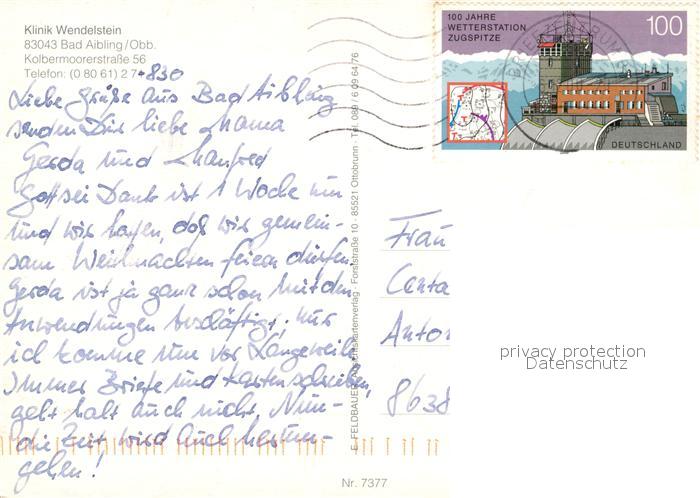 Klinik Wendelstein
83043 Bad Aibling/Obb.
Kolbermoorerstraße 56
Telefon: (0 80 61) 2 7-830
Liebe Grüße aus Bad Aibling
senden Dir liebe Mama
Gerda und Manfred
Gott sei Dank ist 1 Woche um
und wir hoffen, daß wir gemein-
sam Weihnachten feiern dürfen.
Gerda ist ja ganz schön mit den
Anwendungen beschäftigt; nur
ich komme um vor Langeweile.
Immer Briefe und Karten schreiben,
geht halt auch nicht. Nun-
die Zeit wird auch herum-
gehen!
E. FELDBAUER Ansichtskartenverlag · Forststraße 10 · 85521 Ottobrunn · Tel. 089 / 6 09 64 76
100 JAHRE
WETTERSTATION
ZUGSPITZE
100
DEUTSCHLAND
Frau
Centa
Anton
privacy protection
Datenschutz
8638
Nr. 7377